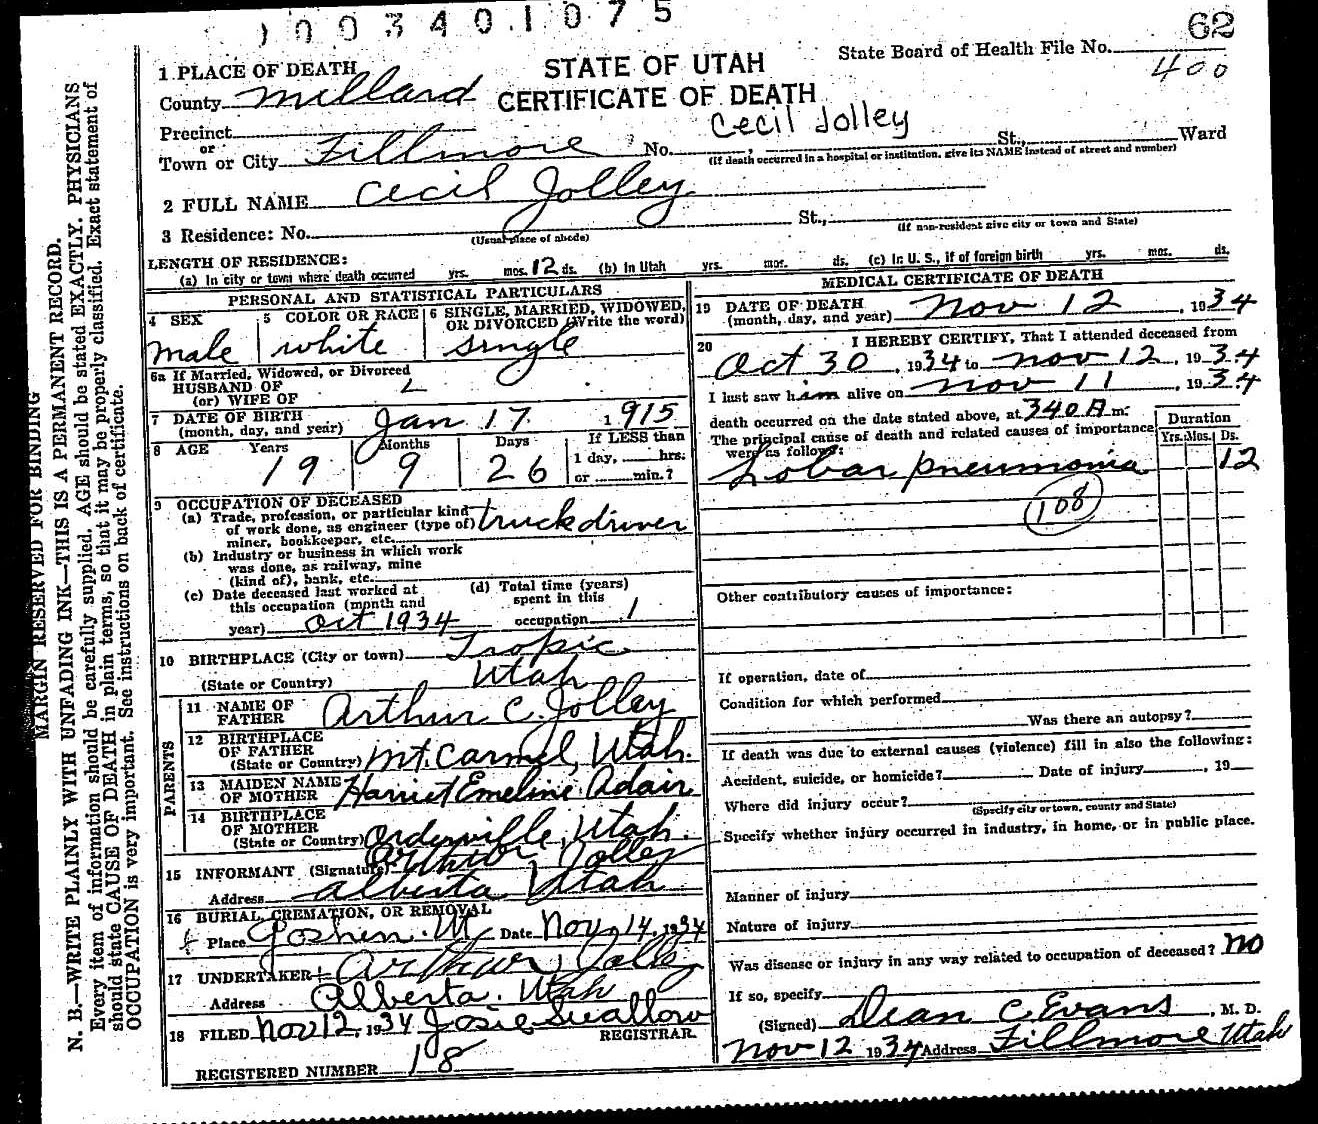 1003401075
62
State Board of Health File No.
400
1 PLACE OF DEATH
STATE OF UTAH
County Millard
CERTIFICATE OF DEATH
Cecil Jolley
Precinct
or
Town or City Fillmore No. St., Ward
(If death occurred in a hospital or institution, give its NAME instead of street and number)
2 FULL NAME Cecil Jolley
3 Residence: No. St.,
(Usual place of abode) (If non-resident give city or town and State)
LENGTH OF RESIDENCE:
(a) In city or town where death occurred yrs. mos. 12 ds. (b) In Utah yrs. mos. ds. (c) In U. S., if of foreign birth yrs. mos. ds.
PERSONAL AND STATISTICAL PARTICULARS
4 SEX
male
5 COLOR OR RACE
white
6 SINGLE, MARRIED, WIDOWED,
OR DIVORCED (Write the word)
single
6a If Married, Widowed, or Divorced
HUSBAND OF
(or) WIFE OF
7 DATE OF BIRTH
(month, day, and year) Jan 17. 1915
8 AGE Years Months Days If LESS than
19 9 26 1 day, hrs.
or min.?
9 OCCUPATION OF DECEASED
(a) Trade, profession, or particular kind
of work done, as engineer (type of) truck driver
miner, bookkeeper, etc.
(b) Industry or business in which work
was done, as railway, mine
(kind of), bank, etc.
(c) Date deceased last worked at
this occupation (month and
year) Oct 1934
(d) Total time (years)
spent in this
occupation 1
10 BIRTHPLACE (City or town) Tropic
(State or Country) Utah
PARENTS
11 NAME OF
FATHER Arthur C. Jolley
12 BIRTHPLACE
OF FATHER
(State or Country) Mt. Carmel, Utah.
13 MAIDEN NAME
OF MOTHER Harriet Emeline Adair
14 BIRTHPLACE
OF MOTHER
(State or Country) Orderville, Utah.
15 INFORMANT (Signature) Arthur Jolley
Address Alberta Utah
16 BURIAL, CREMATION, OR REMOVAL
Place Goshen. Ut Date Nov. 14, 1934
17 UNDERTAKER Arthur Jolley
Address Alberta. Utah
18 FILED Nov 12, 1934 Josie Swallow
REGISTRAR.
REGISTERED NUMBER 18
MEDICAL CERTIFICATE OF DEATH
19 DATE OF DEATH
(month, day, and year) Nov 12, 1934
20 I HEREBY CERTIFY, That I attended deceased from
Oct 30, 1934 to Nov 12, 1934
I last saw him alive on Nov 11, 1934
death occurred on the date stated above, at 340 A m.
The principal cause of death and related causes of importance
were as follows:
Duration
Yrs. Mos. Ds.
Lobar pneumonia 12
108
Other contributory causes of importance:
If operation, date of
Condition for which performed
Was there an autopsy?
If death was due to external causes (violence) fill in also the following:
Accident, suicide, or homicide? Date of injury , 19
Where did injury occur?
(Specify city or town, county and State)
Specify whether injury occurred in industry, in home, or in public place.
Manner of injury
Nature of injury
Was disease or injury in any way related to occupation of deceased? no
If so, specify
(Signed) Dean C Evans, M. D.
Nov 12 1934 Address Fillmore Utah
MARGIN RESERVED FOR BINDING
N. B.—WRITE PLAINLY WITH UNFADING INK—THIS IS A PERMANENT RECORD.
Every item of information should be carefully supplied. AGE should be stated EXACTLY. PHYSICIANS
should state CAUSE OF DEATH in plain terms, so that it may be properly classified. Exact statement of
OCCUPATION is very important. See instructions on back of certificate.